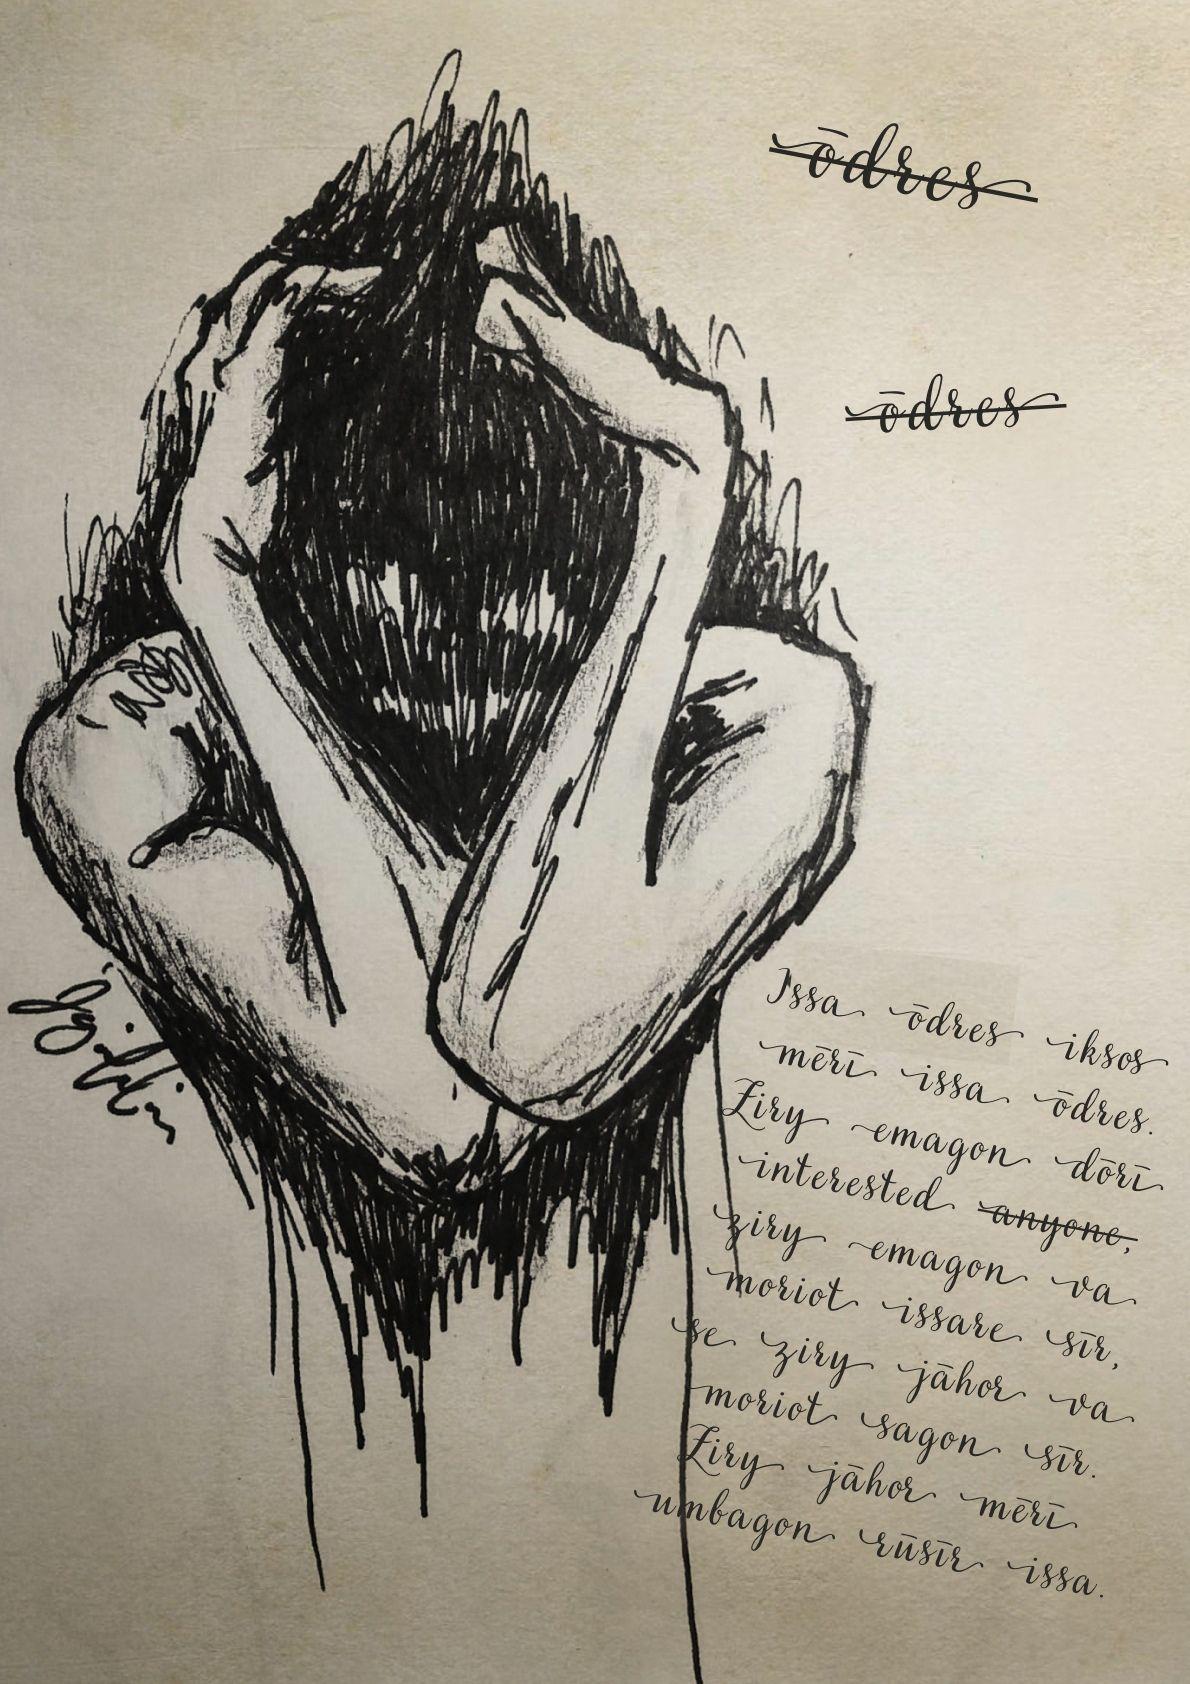 ōdres
ōdres
Issa ōdres iksos
mērī issa ōdres.
Ziry emagon dōrī
interested anyone,
ziry emagon va
moriot issare sīr,
se ziry jāhor va
moriot sagon sīr.
Ziry jāhor mērī
umbagon rūsīr issa.